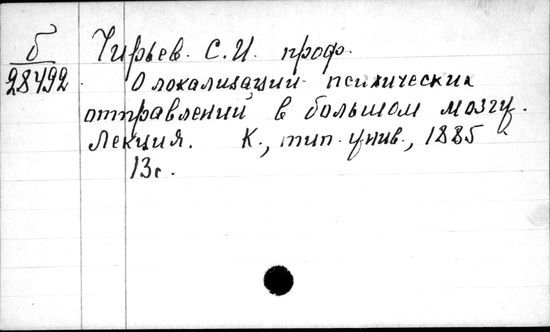 б
28492
Чирьев. С.И. проф.
О локализации психических
отправлений в большом мозгу.
Лекция. К., тип. унив., 1885
13с.